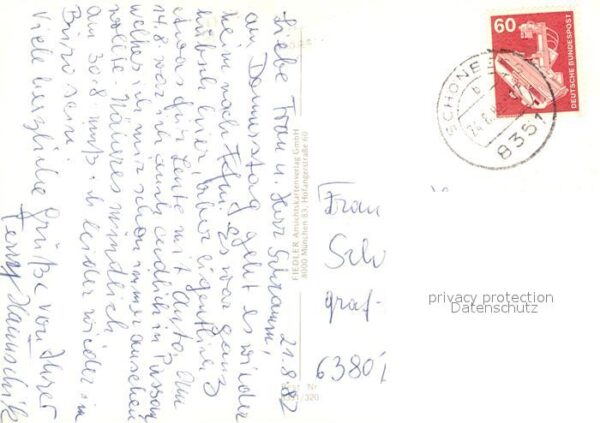 21.8.82
Liebe Frau u. Herr Schramm,
am Donnerstag geht es wieder
heim nach Erfurt. Es war ganz
hübsch hier, aber eigentlich
etwas für Leute mit Auto. Am
14.8. war ich auch endlich in Passau
welches ich mir schon immer ansehen
wollte. Näheres mündlich.
Am 30.8. muß ich leider wieder im
Büro sein.
Viele herzliche Grüße von Ihrer
FIEDLER Ansichtskartenverlag GmbH
8000 München 83, Hofangerstraße 60
Nr
/320
60
DEUTSCHE BUNDESPOST
SCHÖNE
b
24.8.
8351
Frau
Sch
graf-
6380
privacy protection
Datenschutz